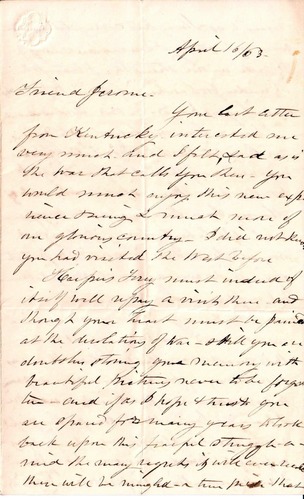 April 16/63.
Friend Jerome.
Your last letter
from Kentucky interested me
very much and I felt, sad as is
the war that calls you there - you
would much enjoy this new expe
rience & seeing so much more of
our glorious country - I did not know
you had visited the West before
Harpers Ferry must indeed of
itself well repay a visit there and
though your heart must be pained
at the desolations of war - still you are
doubtless storing your memory with
beautiful pictures never to be forgot
ten - and if as I hope & trust you
are spared for many years to look
back upon this fearful struggle - a
mid the many regrets it will
there will be mingled - a